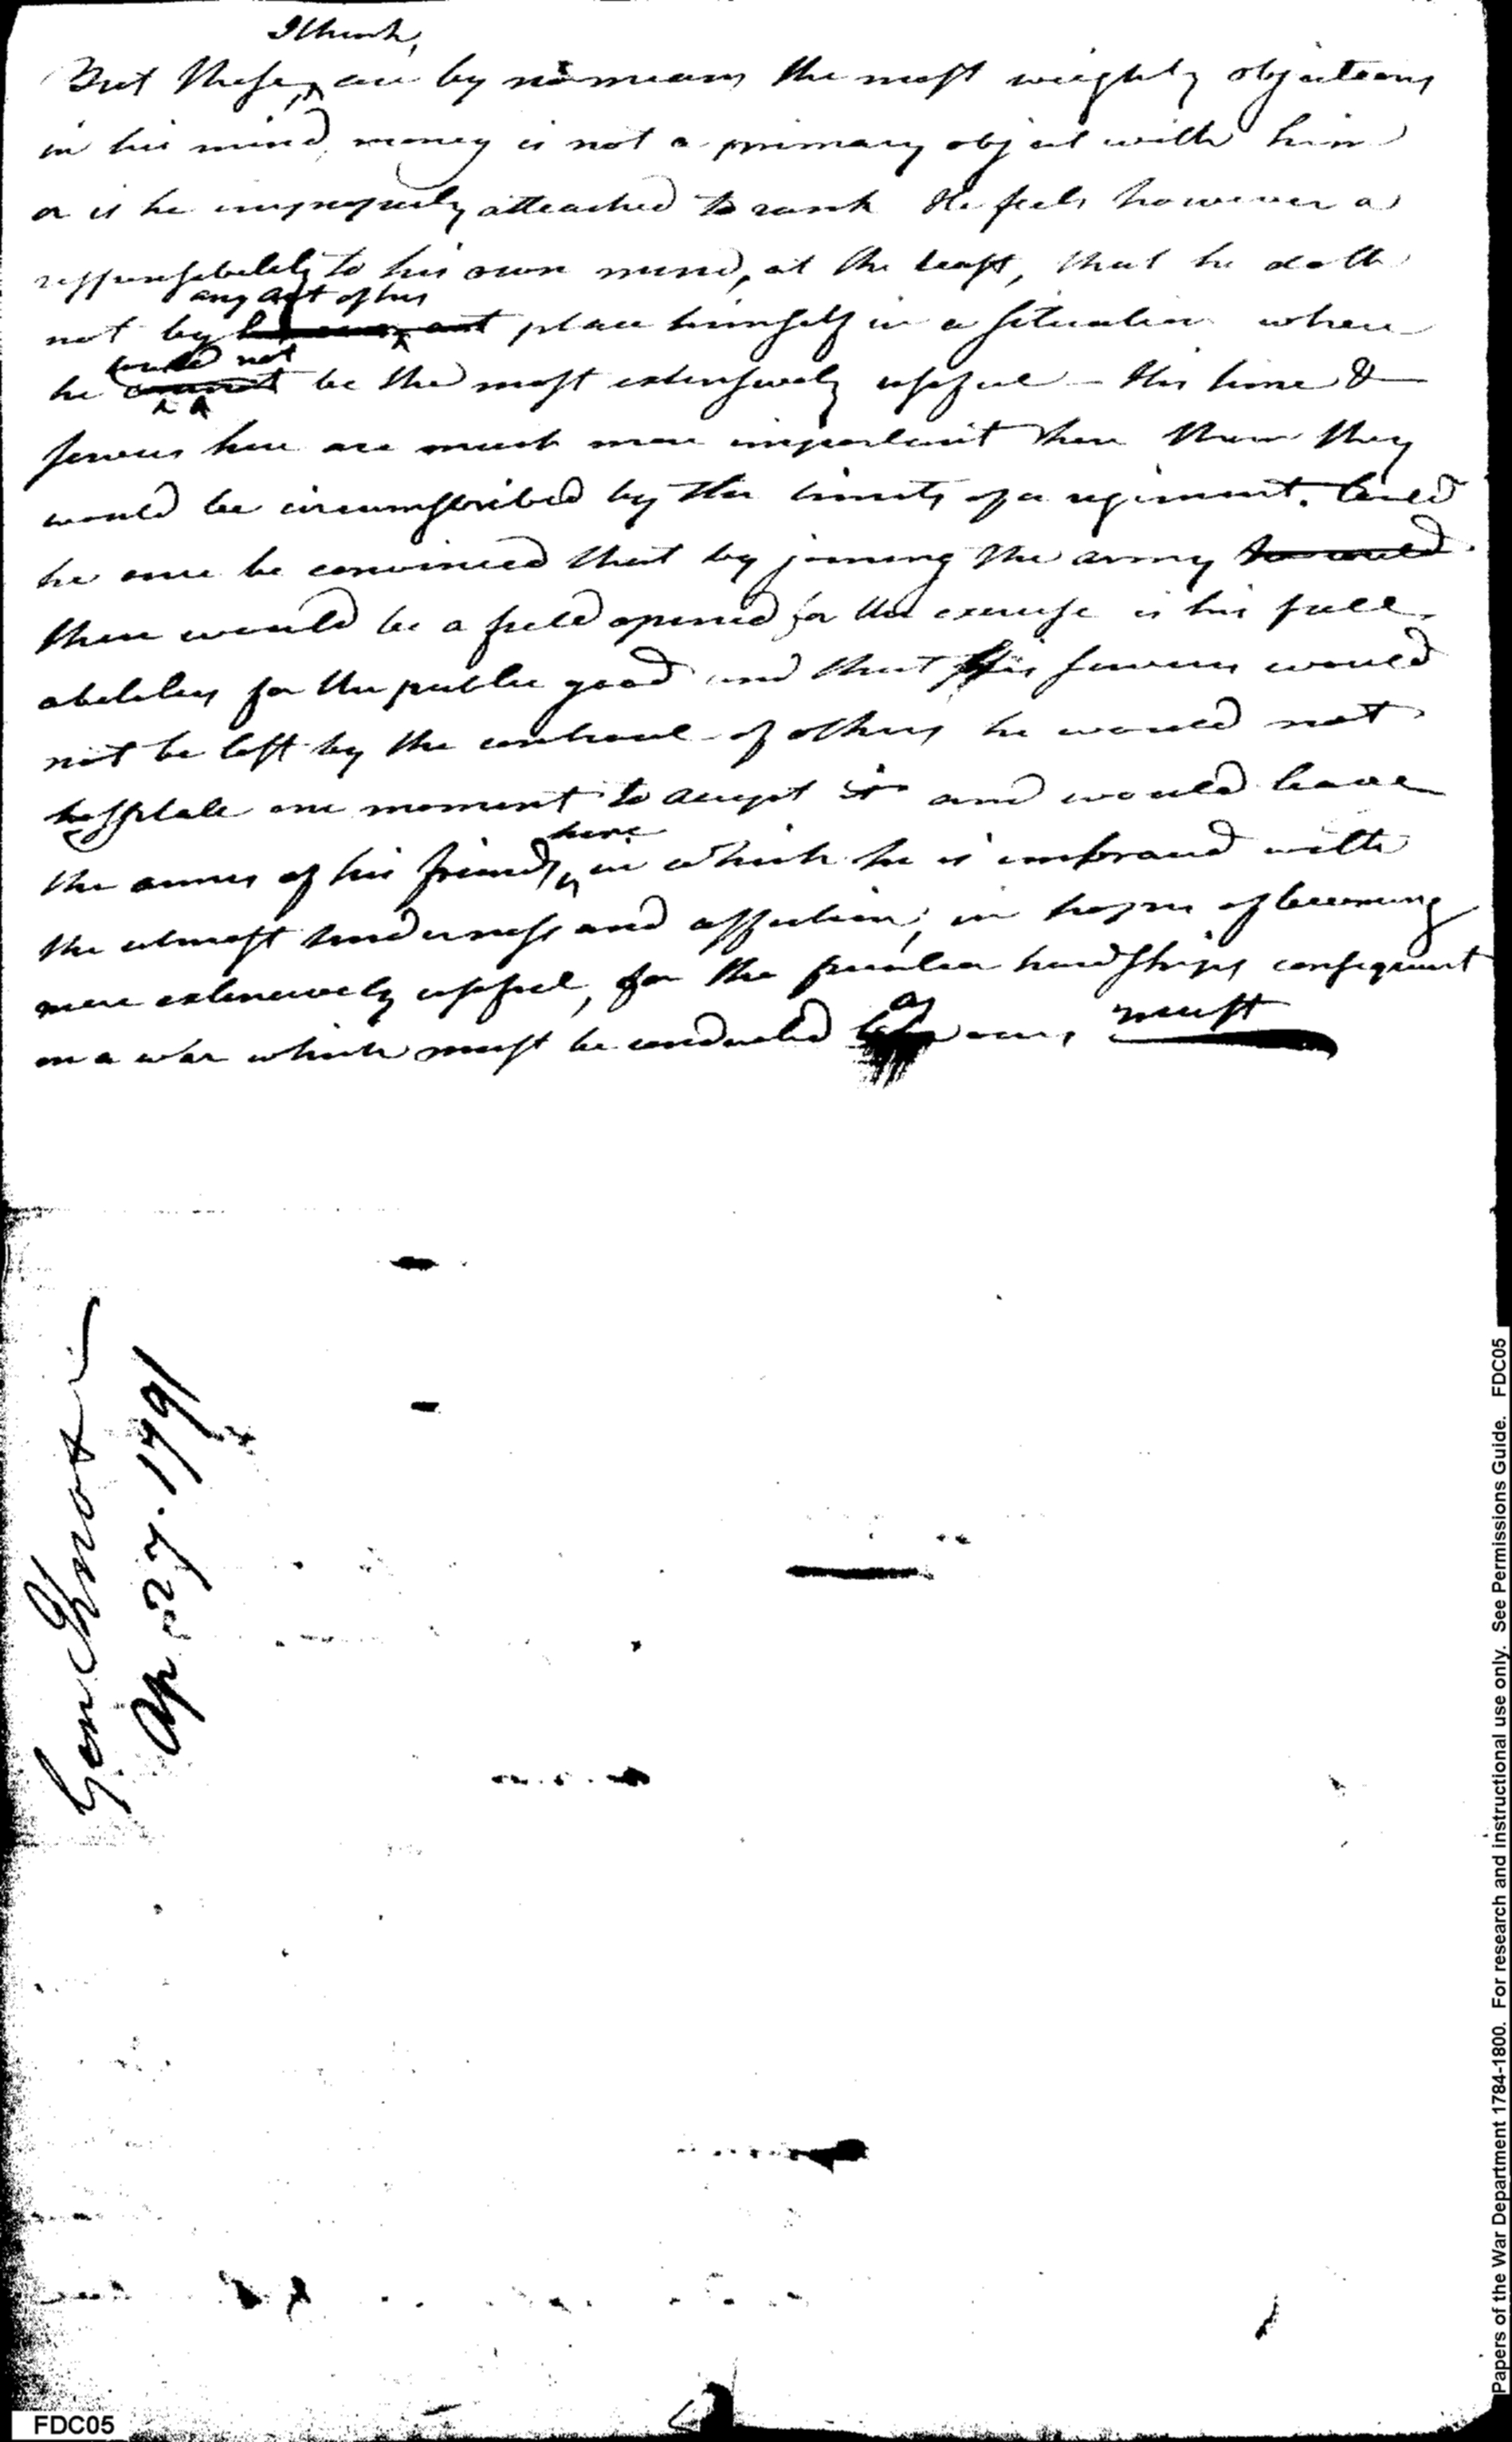 I think,
But these, are by no means the most weighty objections
in his mind, money is not a primary object with him
or is he improperly attached to rank He feels however a
responsibility to his own mind, at the least, that he doth
any act of his
not by place himself in a situation where
could not
he cannot be the most extensively useful – His time &
services here are much more important here than they
would be circumscribed by the limits of a regiment. Could
he once be convinced that by joining the army he could
there would be a field opened for the exercise is his full
abilities for the public good and that his services would
not be lost by the controul of others he would not
hesitate one moment to accept it and would leave
here
the arms of his friends, in which he is imbraced with
the utmost tenderness and affection, in hopes of becoming
more extensively useful, for the peculiar hardships consequent
as
on a war which must be conducted ours, must
Gen Knox
Ap. 27. 1791
Papers of the War Department 1784-1800. For research and instructional use only. See Permissions Guide. FDC05
FDC05